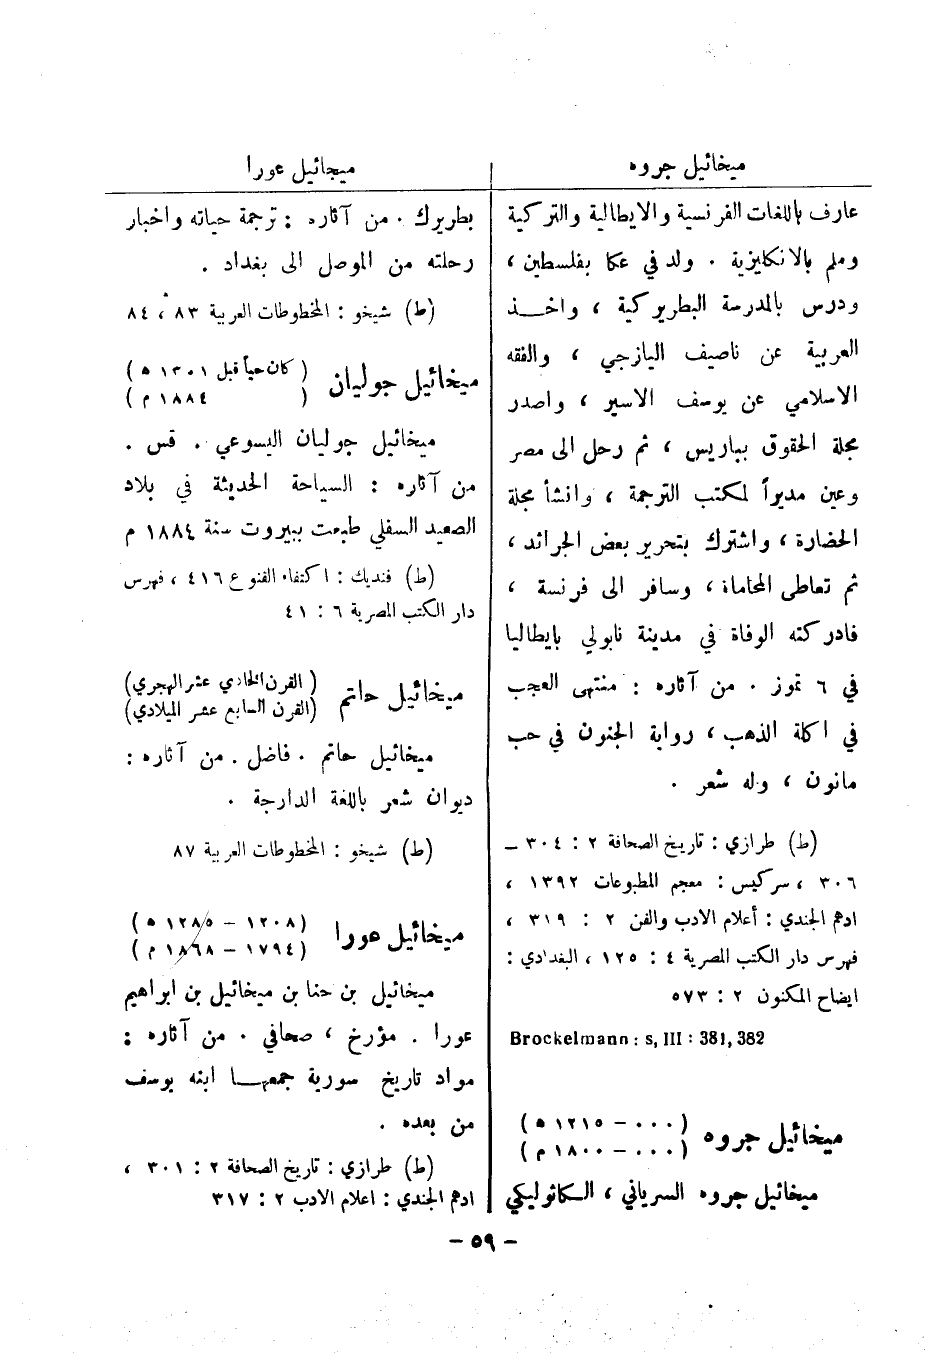 ميخائيل جروه
ميخائيل عورا
عارف باللغات الفرنسية والايطالية والتركية
وملم بالانكليزية . ولد في عكا بفلسطين ،
ودرس بالمدرسة البطريركية ، واخـــذ
العربية عن ناصيف اليازجي ، والفقه
الاسلامي عن يوسف الاسير ، واصدر
مجلة الحقوق بباريس ، ثم رحل الى مصر
وعين مديراً لمكتب الترجمة ، وانشأ مجلة
الحضارة ، واشترك بتحرير بعض الجرائد ،
ثم تعاطى المحاماة ، وسافر الى فرنسة ،
فادركته الوفاة في مدينة نابولي بايطاليا
في ٦ تموز . من آثاره : منتهى العجب
في اكلة الذهب ، رواية الجنون في حب
مانون ، وله شعر .
(ط) طرازي : تاريخ الصحافة ٢ : ٣٠٤ –
٣٠٦ ، سركيس : معجم المطبوعات ١٣٩٢ ،
ادهم الجندي : أعلام الادب والفن ٢ : ٣١٩ ،
فهرس دار الكتب المصرية ٤ : ١٢٥ ، البغدادي :
ايضاح المكنون ٢ : ٥٧٣
Brockelmann : s, III : 381, 382
ميخائيل جروه (٠٠٠ – ١٢١٥ ه)
(٠٠٠ – ١٨٠٠ م)
ميخائيل جروه السرياني ، الكاثوليكي
بطريرك . من آثاره : ترجمة حياته واخبار
رحلته من الموصل الى بغداد .
(ط) شيخو : المخطوطات العربية ٨٣ ، ٨٤
ميخائيل جوليان (كان حياً قبل ١٣٠١ ه)
( ١٨٨٤ م)
ميخائيل جوليان اليسوعي . قس .
من آثاره : السياحة الحديثة في بلاد
الصعيد السفلي طبعت ببيروت سنة ١٨٨٤ م
(ط) فنديك : اكتفاء القنوع ٤١٦ ، فهرس
دار الكتب المصرية ٦ : ٤١
ميخائيل حاتم (القرن الحادي عشر الهجري)
(القرن السابع عشر الميلادي)
ميخائيل حاتم . فاضل . من آثاره :
ديوان شعر باللغة الدارجة .
(ط) شيخو : المخطوطات العربية ٨٧
ميخائيل عورا (١٢٠٨ – ١٢٨٥ ه)
(١٧٩٤ – ١٨٦٨ م)
ميخائيل بن حنا بن ميخائيل بن ابراهيم
عورا . مؤرخ ، صحافي . من آثاره :
مواد تاريخ سورية جمعهـــا ابنه يوسف
من بعده .
(ط) طرازي : تاريخ الصحافة ٢ : ٣٠١ ،
ادهم الجندي : اعلام الادب ٢ : ٣١٧
– ٥٩ –